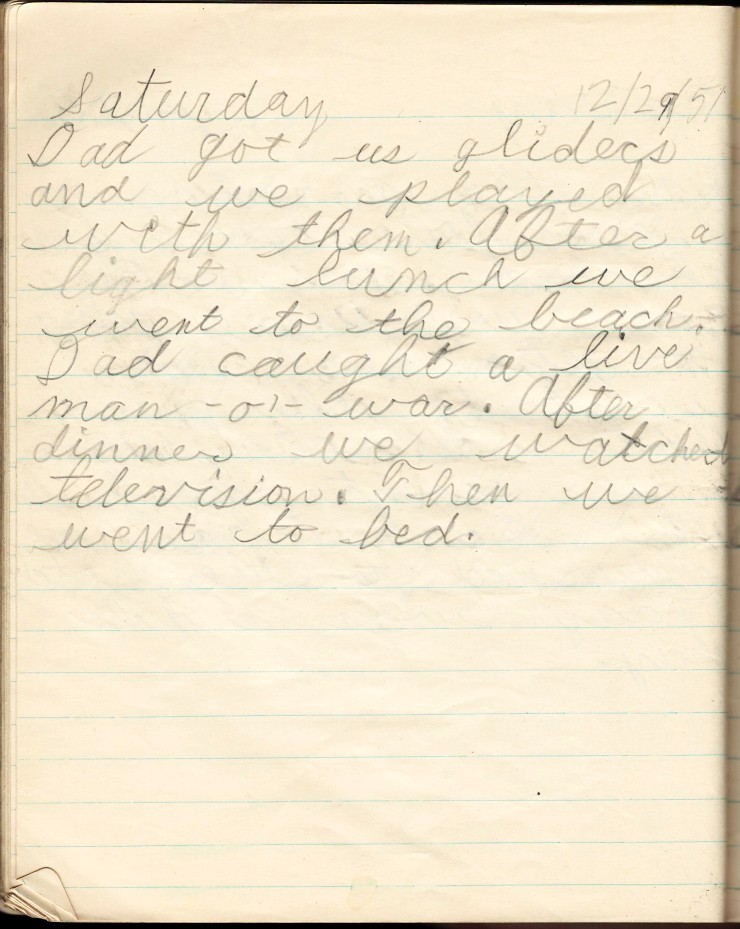 Saturday 12/29/51
Dad got us gliders
and we played
with them. After a
light lunch we
went to the beach.
Dad caught a live
man-o'-war. After
dinner we watched
television. Then we
went to bed.